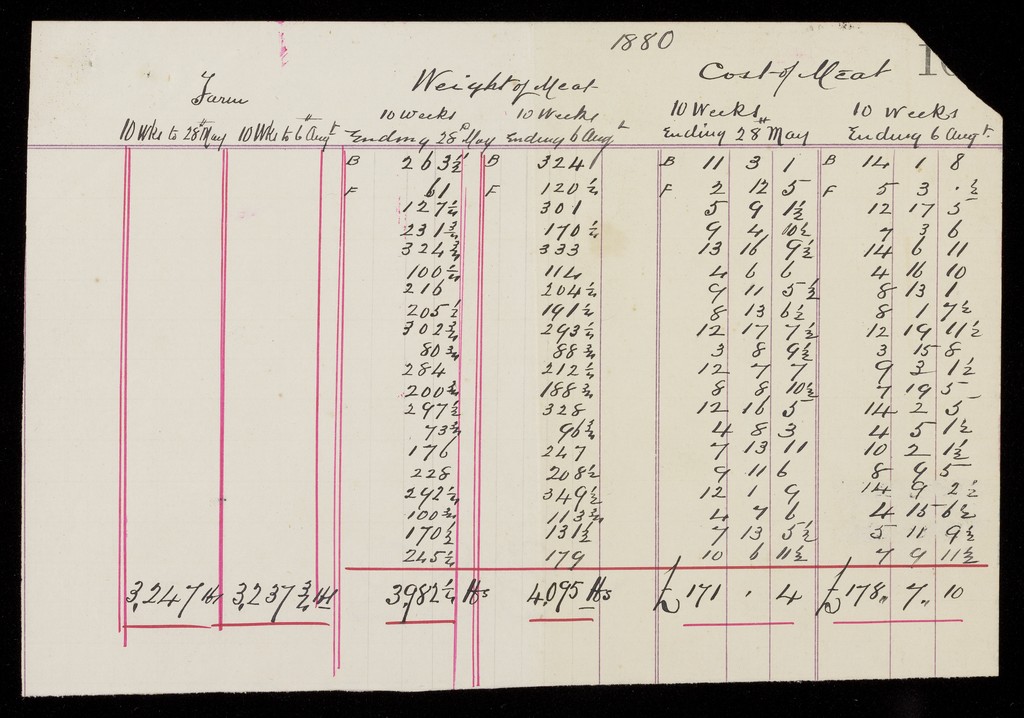 1880
Farm Weight of Meat Cost of Meat
10 Weeks 10 Weeks 10 Weeks 10 Weeks
10 Wks to 28th May 10 Wks to 6th Augt Ending 28th May Ending 6 Augt Ending 28th May Ending 6 Augt
B 263½ B 324 B 11 3 1 B 14 1 8
F 61 F 120¼ F 2 12 5 F 5 3 .½
127¼ 301 5 9 1½ 12 17 5
231¾ 170¼ 9 4 10½ 7 3 6
324¾ 333 13 16 9½ 14 6 11
100¼ 114 4 6 6 4 16 10
216 204¼ 9 11 5½ 8 13 1
205½ 191¼ 8 13 6½ 8 1 7½
302¾ 293¼ 12 17 7½ 12 19 11½
80¾ 88¾ 3 8 9½ 3 15 8
284 212¼ 12 7 7 9 3 1½
200¾ 188¾ 8 8 10½ 7 19 5
297½ 328 12 16 5 14 2 5
73¾ 96¾ 4 8 3 4 5 1½
176 247 7 13 11 10 2 1½
228 208½ 9 11 6 8 9 5
292¼ 349½ 12 1 9 14 9 2½
100¾ 113¾ 4 7 6 4 15 6½
170½ 131½ 7 13 5½ 5 11 9½
245¼ 179 10 6 11½ 7 9 11½
3,247 lbs 3,237¾ lbs 3,982¼ lbs 4,095 lbs £171 . 4 £178,, 7,, 10